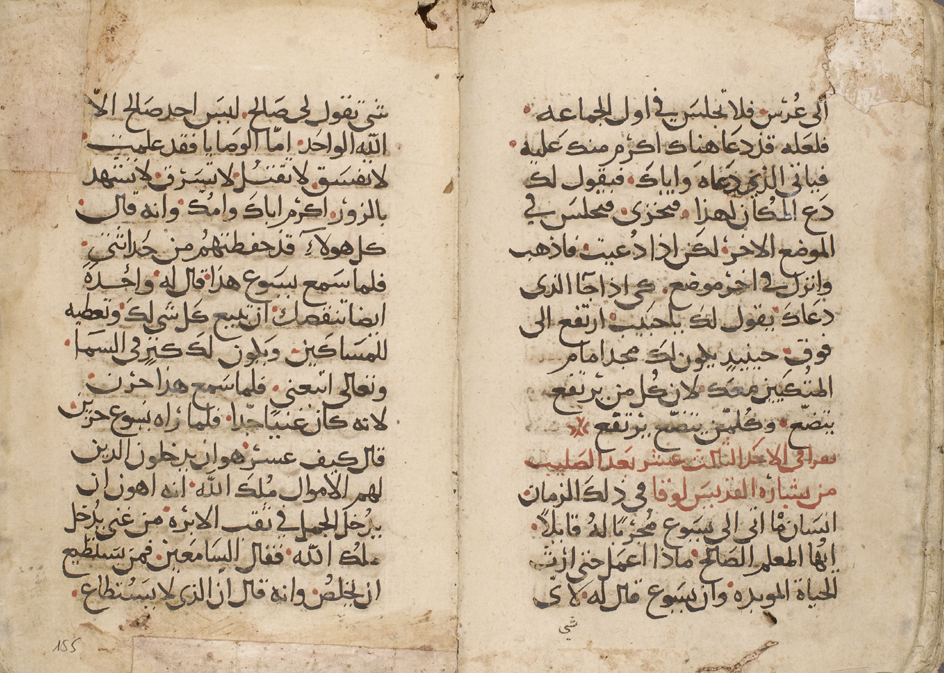 الى عُرْس فلا تجلس في اول الجماعه
فلعله قد دعا هناك اكرم منك عليه
فياتي الذي دعاه واياك فيقول لك
دع المكان لهذا فتخزى وتجلس في
الموضع الاخر لكن اذا دعيت فاذهب
وانزل في اخر موضع كي اذا جا الذى
دعاك يقول لك يا حبيب ارتفع الى
فوق حينيدٍ يكون لك مجد امام
المتكيين معك لان كُل من يرتفع
يتضع وكلمن يتضع يرتفع
يقرا في الاحد الثالث عشر بعد الصليب
من بشارة القديس لوقا في ذلك الزمان
انسان ما اتى الى يسوع مُجرّبًا لهُ قايلاً
ايها المعلم الصالح ماذا اعمل حتى ارث
الحياة الموبده وان يسوع قال له لاى
شي
شي تقول لى صالح ليس احد صالح الاّ
الله الواحد امّا الوصايا فقد علمت
لا تفسق لا تقتل لا تسرق لا تشهد
بالزور اكرم اباك وامك وانه قال
كل هولاء قد حفظتهم من حداثتي
فلما سمع يسوع هذا قال له واحدة
ايضا تنقصك ان تبيع كل شي لك وتعطيه
للمساكين ويكون لك كنز في السما
وتعالى اتبعني فلما سمع هذا حزن
لانه كان غنيًا جدًا فلما راه يسوع حزين
قال كيف عسر هو ان يدخلون الذين
لهم الاموال مُلك الله انه اهون ان
يدخل الجمل في ثقب الابره من غني يدخل
ملك الله فقال السامعين فمن يستطيع
ان يخلص وانه قال ان الذى لا يستطاع
155